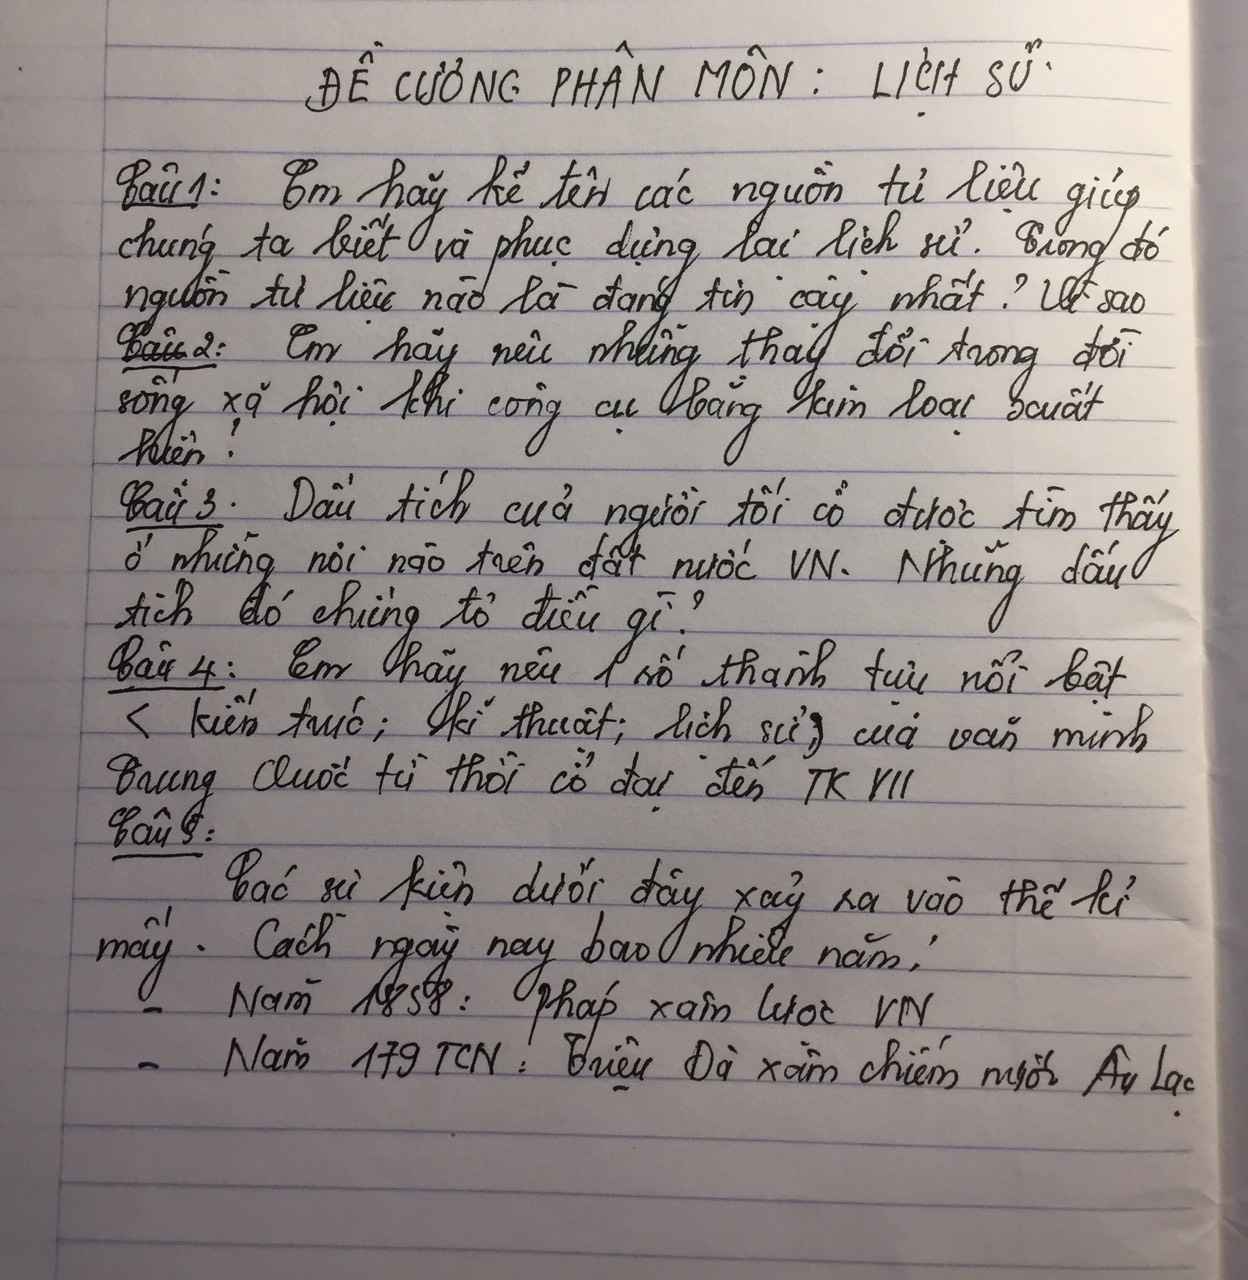 ĐỀ CƯƠNG PHÂN MÔN: LỊCH SỬ
Câu 1: Em hãy kể tên các nguồn tư liệu giúp
chúng ta biết và phục dựng lại lịch sử. Trong đó
nguồn tư liệu nào là đáng tin cậy nhất? Vì sao
Câu 2: Em hãy nêu những thay đổi trong đời
sống xã hội khi công cụ bằng kim loại xuất
hiện!
Câu 3. Dấu tích của người tối cổ được tìm thấy
ở những nơi nào trên đất nước VN. Những dấu
tích đó chứng tỏ điều gì?
Câu 4: Em hãy nêu 1 số thành tựu nổi bật
< kiến trúc; kĩ thuật; lịch sử) của văn minh
Trung Quốc từ thời cổ đại đến TK VII
Câu 5:
Các sự kiện dưới đây xảy ra vào thế kỉ
mấy. Cách ngày nay bao nhiêu năm!
- Năm 1858: Pháp xâm lược VN
- Năm 179 TCN: Triệu Đà xâm chiếm nước Âu Lạc